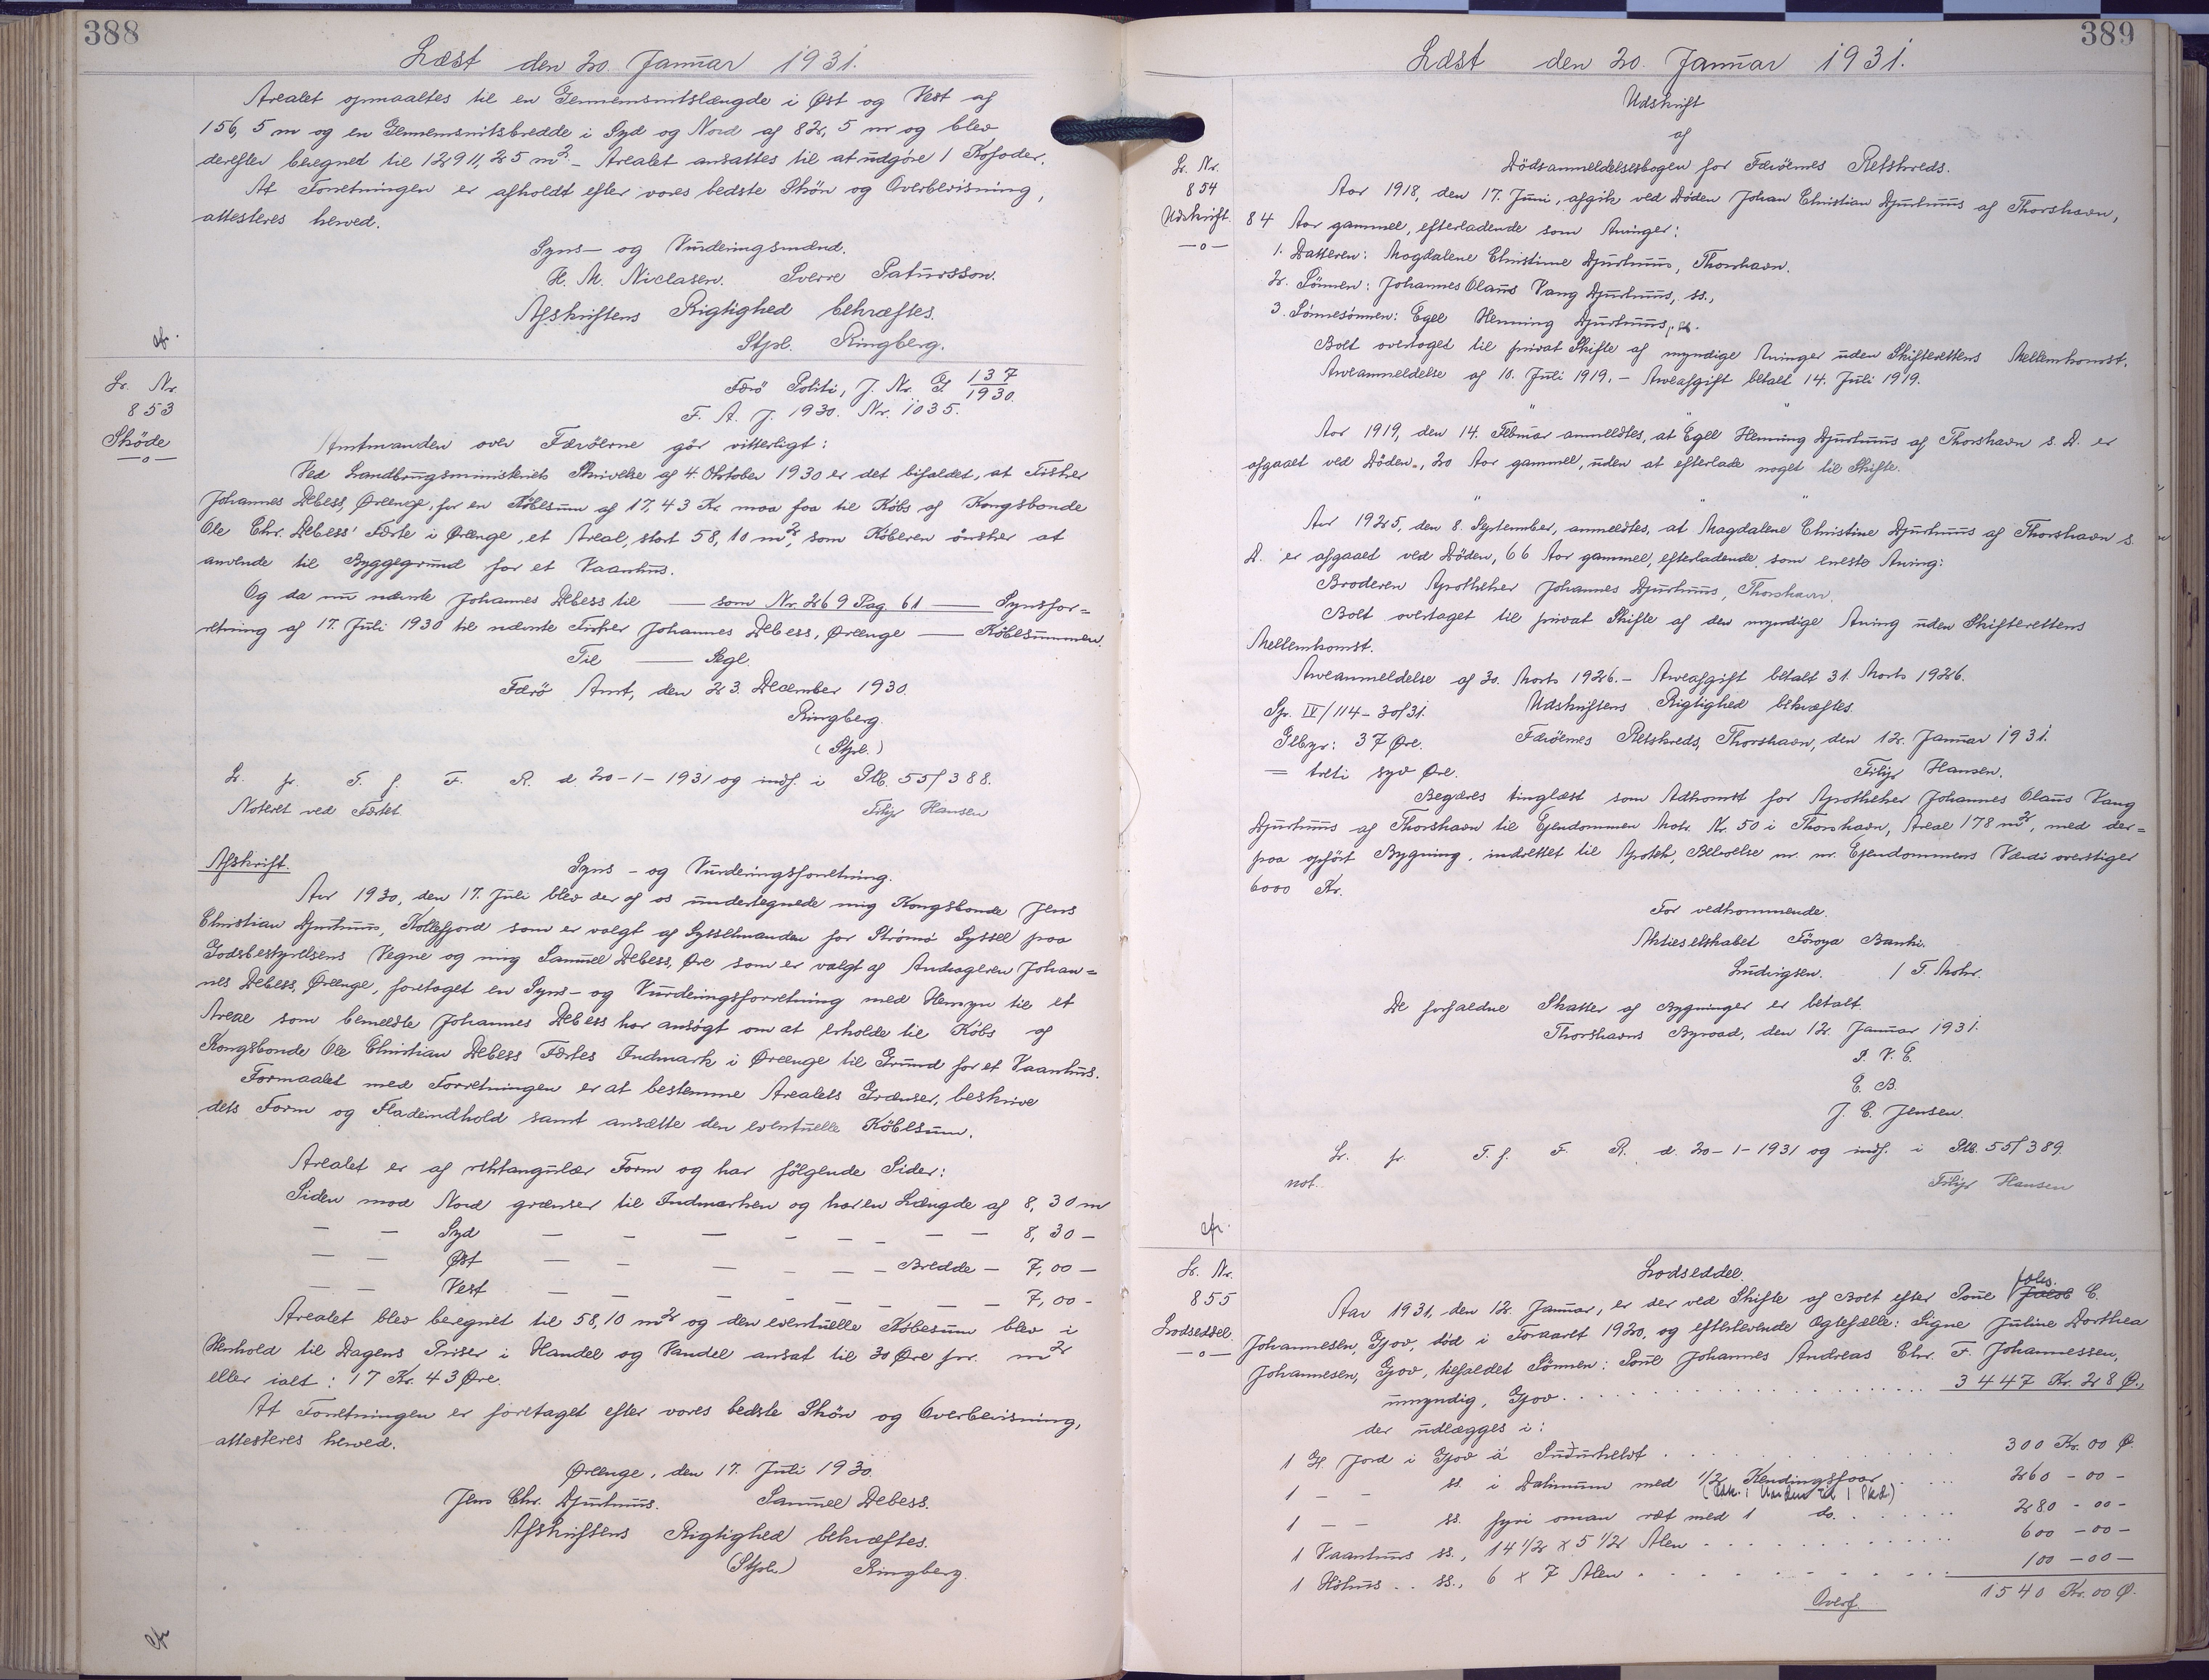 388
Læst den 20. Januar 1931.
Arealet opmaaltes til en Gennemsnitslængde i Øst og Vest af
156,5 m og en Gennemsnitsbredde i Syd og Nord af 82,5 m og blev
derefter beregnet til 12911,25 m2. - Arealet ansattes til at udgøre 1 Kofoder.
At Forretningen er afholdt efter vores bedste Skön og Overbevisning,
attesteres herved.
Syns- og Vurderingsmænd.
H. M. Niclasen. Sverre Patursson.
Afskriftens Rigtighed bekræftes.
Stpl. Ringberg.
cfr.
Lr. Nr.
853
Sköde
—o—
Færø Politi, J. Nr. G 137/1930.
F. A. J. 1930. Nr. 1035.
Amtmanden over Færöerne gör vitterligt:
Ved Landbrugsministeriets Skrivelse af 4. Oktober 1930 er det bifaldet, at Fisker
Johannes Debess, Ørenge, for en Købesum af 17,43 Kr. maa faa til Købs af Kongsbonde
Ole Chr. Debess' Fæste i Ørenge, et Areal, stort 58,10 m2, som Køberen ønsker at
anvende til Byggegrund for et Vaanhus.
Og da nu nævnte Johannes Debess til — som Nr. 269 Pag. 61 — Synsfor=
retning af 17. Juli 1930 til nævnte Fisker Johannes Debess, Ørenge — Købesummen.
Til — Segl.
Færø Amt, den 23. December 1930.
Ringberg.
(Stpl.)
Lr. fr. T. f. F. R. d. 20-1-1931 og indf. i Ptb. 55/388.
Noteret ved Fæstet. Filip Hansen
Afskrift.
Syns- og Vurderingsforretning.
Aar 1930, den 17. Juli blev der af os undertegnede mig Kongsbonde Jens
Christian Djurhuus, Kollefjord som er valgt af Sysselmanden for Strömö Syssel paa
Godsbestyrelsens Vegne og mig Samuel Debess, Øre som er valgt af Andrageren Johan=
nes Debess, Ørenge, foretaget en Syns- og Vurderingsforretning med Hensyn til et
Areal som bemeldte Johannes Debess har ansøgt om at erholde til Købs af
Kongsbonde Ole Christian Debess Fæstes Indmark i Ørenge til Grund for et Vaanhus.
Formaalet med Forretningen er at bestemme Arealets Grænser, beskrive
dets Form og Fladeindhold samt ansætte den eventuelle Købesum.
Arealet er af rektangulær Form og har følgende Sider:
Siden mod Nord grænser til Indmarken og har en Længde af 8,30 m
— — Syd — — — — — — — — 8,30 —
— — Øst — — — — — — Bredde — 7,00 —
— — Vest — — — — — — — — 7,00 -
Arealet blev beregnet til 58,10 m2 og den eventuelle Købesum blev i
Henhold til Dagens Priser i Handel og Vandel ansat til 30 Øre pr. m2
eller ialt: 17 Kr. 43 Øre.
At Forretningen er foretaget efter vores bedste Skön og Overbevisning,
attesteres herved.
Ørenge, den 17. Juli 1930.
Jens Chr. Djurhuus. Samuel Debess.
Afskriftens Rigtighed bekræftes.
(Stpl.) Ringberg.
cfr
389
Læst den 20. Januar 1931.
Udskrift
af
Dödsanmeldelsesbogen for Færöernes Retskreds.
Lr. Nr.
854
Udskrift.
—o—
Aar 1918, den 17. Juni, afgik ved Døden Johan Christian Djurhuus af Thorshavn,
84 Aar gammel, efterladende som Arvinger:
1. Datteren: Magdalene Christine Djurhuus, Thorshavn.
2. Sönnen: Johannes Olaus Vang Djurhuus, ss.,
3. Sönnesönnen: Egel Henning Djurhuus, ss.
Boet overtaget til privat Skifte af myndige Arvinger uden Skifterettens Mellemkomst.
Arveanmeldelse af 10. Juli 1919. - Arveafgift betalt 14. Juli 1919.
" " "
Aar 1919, den 14. Februar anmeldtes, at Egel Henning Djurhuus af Thorshavn s. D. er
afgaaet ved Døden., 20 Aar gammel, uden at efterlade noget til Skifte.
" " "
Aar 1925, den 8. September, anmeldtes, at Magdalene Christine Djurhuus af Thorshavn s.
D. er afgaaet ved Døden, 66 Aar gammel, efterladende, som eneste Arving:
Broderen Apotheker Johannes Djurhuus, Thorshavn.
Boet overtaget til privat Skifte af den myndige Arving uden Skifterettens
Mellemkomst.
Arveanmeldelse af 30. Marts 1926. - Arveafgift betalt 31. Marts 1926.
Sp. IV/114-30/31. Udskriftens Rigtighed bekræftes.
Gebyr: 37 Øre. Færöernes Retskreds, Thorshavn, den 12. Januar 1931.
= treti syv Øre. Filip Hansen.
Begæres tinglæst som Adkomst for Apotheker Johannes Olaus Vang
Djurhuus af Thorshavn til Ejendommen Matr. Nr. 50 i Thorshavn, Areal 178 m2, med der=
paa opført Bygning, indrettet til Apotek, Beboelse m. m. Ejendommens Værdi overstiger
6000 Kr.
For vedkommende.
Aktieselskabet Föroya Banki.
Ludvigsen. / T. Mohr.
De forfaldne Skatter af Bygninger er betalt.
Thorshavns Byraad, den 12. Januar 1931.
P. V. E.
E. B.
J. C. Jensen.
Lr. fr. T. f. F. R. d. 20-1-1931 og indf. i Ptb. 55/389.
not. Filip Hansen
cfr.
Lr. Nr.
855
Lodseddel.
—o—
Lodseddel.
Aar 1931, den 12. Januar, er der ved Skifte af Boet efter Poul Jacob Johs. C.
Johannesen, Gjov, död i Foraaret 1920, og efterlevende Ægtefælle: Signe Juline Dorthea
Johannesen, Gjov, tilfaldet Sönnen: Poul Johannes Andreas Chr. F. Johannessen,
umyndig, Gjov . . . . . 3447 Kr. 28 Ø.,
der udlægges i:
1 Gl. Jord i Gjov á Suðurhelvt . . . . 300 Kr. 00 Ø.
1 — — ss. i Dalinum med 1/2 Kendingsfoar . . . 260 - 00 -
1 — — ss. fyri oman ræt med 1 do. . . . 280 - 00 -
1 Vaanhus ss., 14 1/2 x 5 1/2 Alen . . . . 600 - 00 -
1 Höhus . . ss., 6 x 7 Alen . . . . 100 - 00 -
Overf. 1540 Kr. 00 Ø.